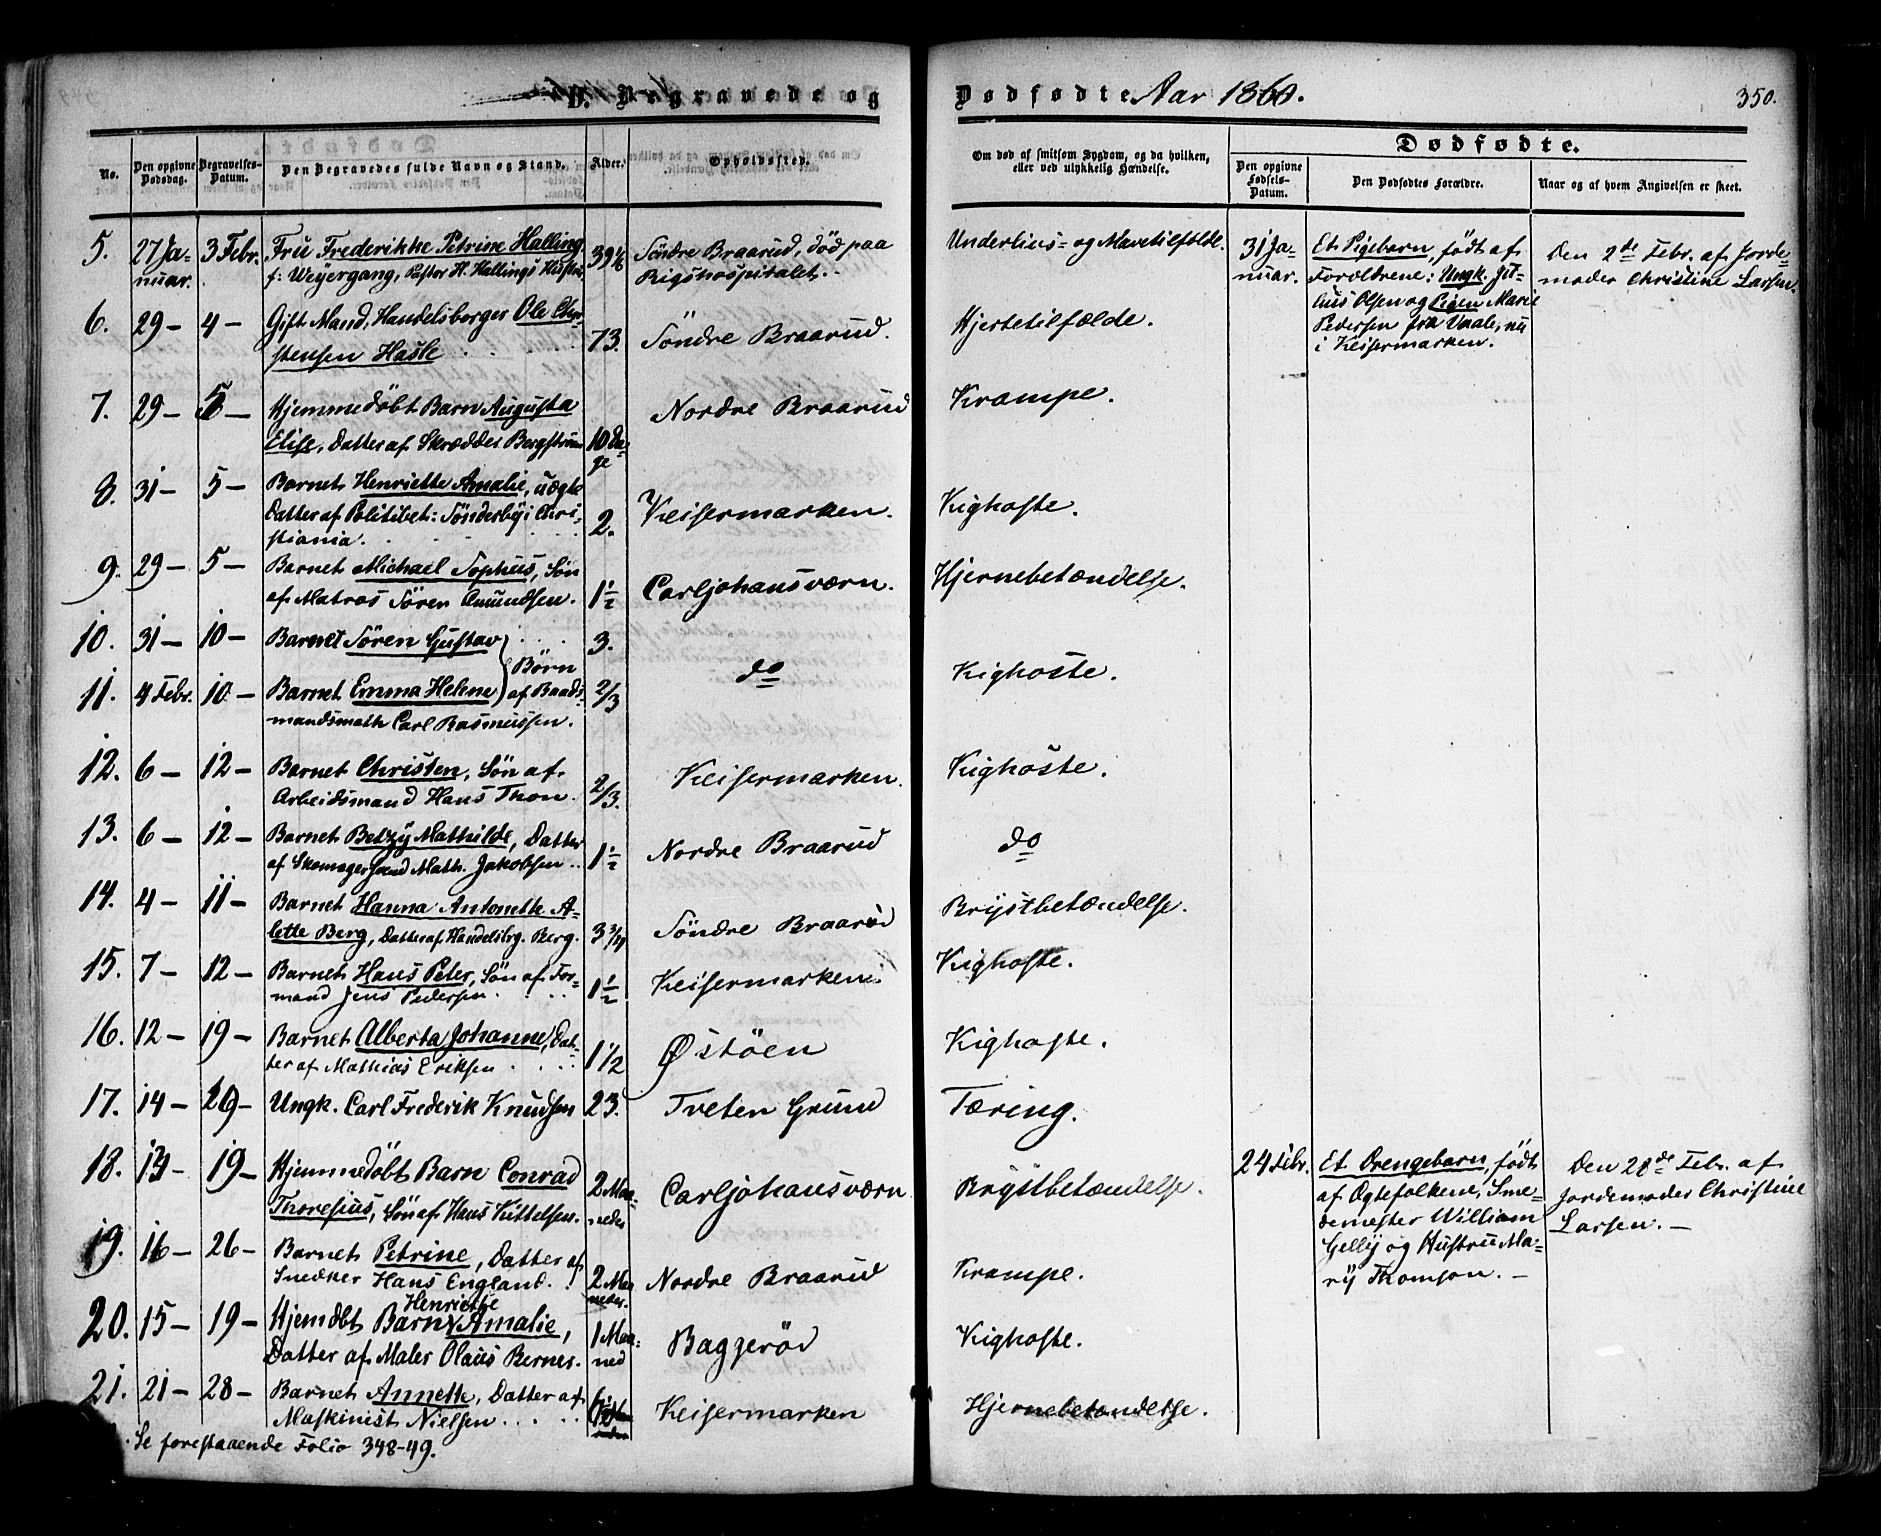 D. Begravede og
Dødfødte Aar 1860.
350.
No.
Den opgivne Dødsdag.
Begravelses-Datum.
Den Begravedes fulde Navn og Stand.
Alder.
Opholdssted.
Om død af smitsom Sygdom, og da hvilken, eller ved ulykkelig Hændelse.
Dødfødte.
Den opgivne Fødsels-Datum.
Den Dødfødtes Forældre.
Naar og af hvem Angivelsen er skeet.
5. 27 Ja- 3 Febr. Fru Frederikke Petrine Halling 39 1/6 Söndre Braarud, död paa Underlivs- og Mavetilfælde.
nuar. f: Weyergang, Pastor H. Hallings Hustru, Rigshospitalet.
31 Ja- Et Pigebarn, født af Den 2de Febr. af Jorde-
nuar. Forældrene: Ungk. Ju- moder Christine Larsen.
lius Olsen og Pigen Marie
Pedersen fra Vaale, nu
i Keisermarken.
6. 29 — 4 — Gift Mand, Handelsborger Ole Chri- 73. Söndre Braarud. Hjertetilfælde.
stensen Hasle
7. 29 — 5 — Hjemmedöbt Barn Augusta Nordre Braarud Krampe.
Elise, Datter af Skrædder Bergström 10 Da-
ge
8. 31 — 5 — Barnet Henriette Amalie, uægte Keisermarken. Kighoste.
Datter af Politibet: Sönderby i Chri- 2.
stiania.
9. 29 — 5 — Barnet Michael Sophus, Sön Carljohansværn. Hjernebetændelse.
af Matros Sören Amundsen. 1 1/2
10. 31 — 10 — Barnet Sören Gustav 3.
Börn do Kighoste.
11. 4 Febr. 10 — Barnet Emma Helene af Baads- 2/3
mandsmath Carl Rasmussen.
12. 6 — 12 — Barnet Christen, Sön af Keisermarken. Kighoste.
Arbeidsmand Hans Thon. 2/3.
13. 6 — 12 — Barnet Betzy Mathilde, Datter Nordre Braarud do
af Skomagersvend Math. Jakobsen 1 1/2
14. 4 — 11 — Barnet Hanna Antonette A- Söndre Braarud Brystbetændelse.
lette Berg, Datter af Handelsbrg. Berg. 3
15. 7 — 12 — Barnet Hans Peter, Sön af For- Keisermarken. Kighoste.
mand Jens Pedersen. 1 1/2
16. 12 — 19 — Barnet Alberta Johanne, Dat- Østöen Kighoste.
ter af Mathias Eriksen 1 1/2
17. 14 — 20 — Ungk. Carl Frederik Knudsen 23. Tveten Grund Tæring.
18. 13 — 19 — Hjemmedöbt Barn Conrad 2 Maa- Carljohansværn Brystbetændelse.
Thoresius, Sön af Hans Kittelsen. neder
24 Febr. Et Drengebarn, født Den 28de Febr. af
af Ægtefolkene, Sme- Jordemoder Christine
demester William Larsen. —
Gelly og Hustru Ma-
ry Thomson. —
19. 16 — 26 — Barnet Petrine, Datter af Nordre Braarud Krampe.
Snedker Hans England. 2 Maa-
neder.
Henriette
20. 15 — 19 — Hjemdöbt Barn Amalie, 1 Maa- Baggeröd Kighoste.
Datter af Maler Olaus Bernes. ned
21. 21 — 28 — Barnet Annette, Datter af Keisermarken Hjernebetændelse.
Maskinist Nielsen
Se forestaaende Folio 348-49.